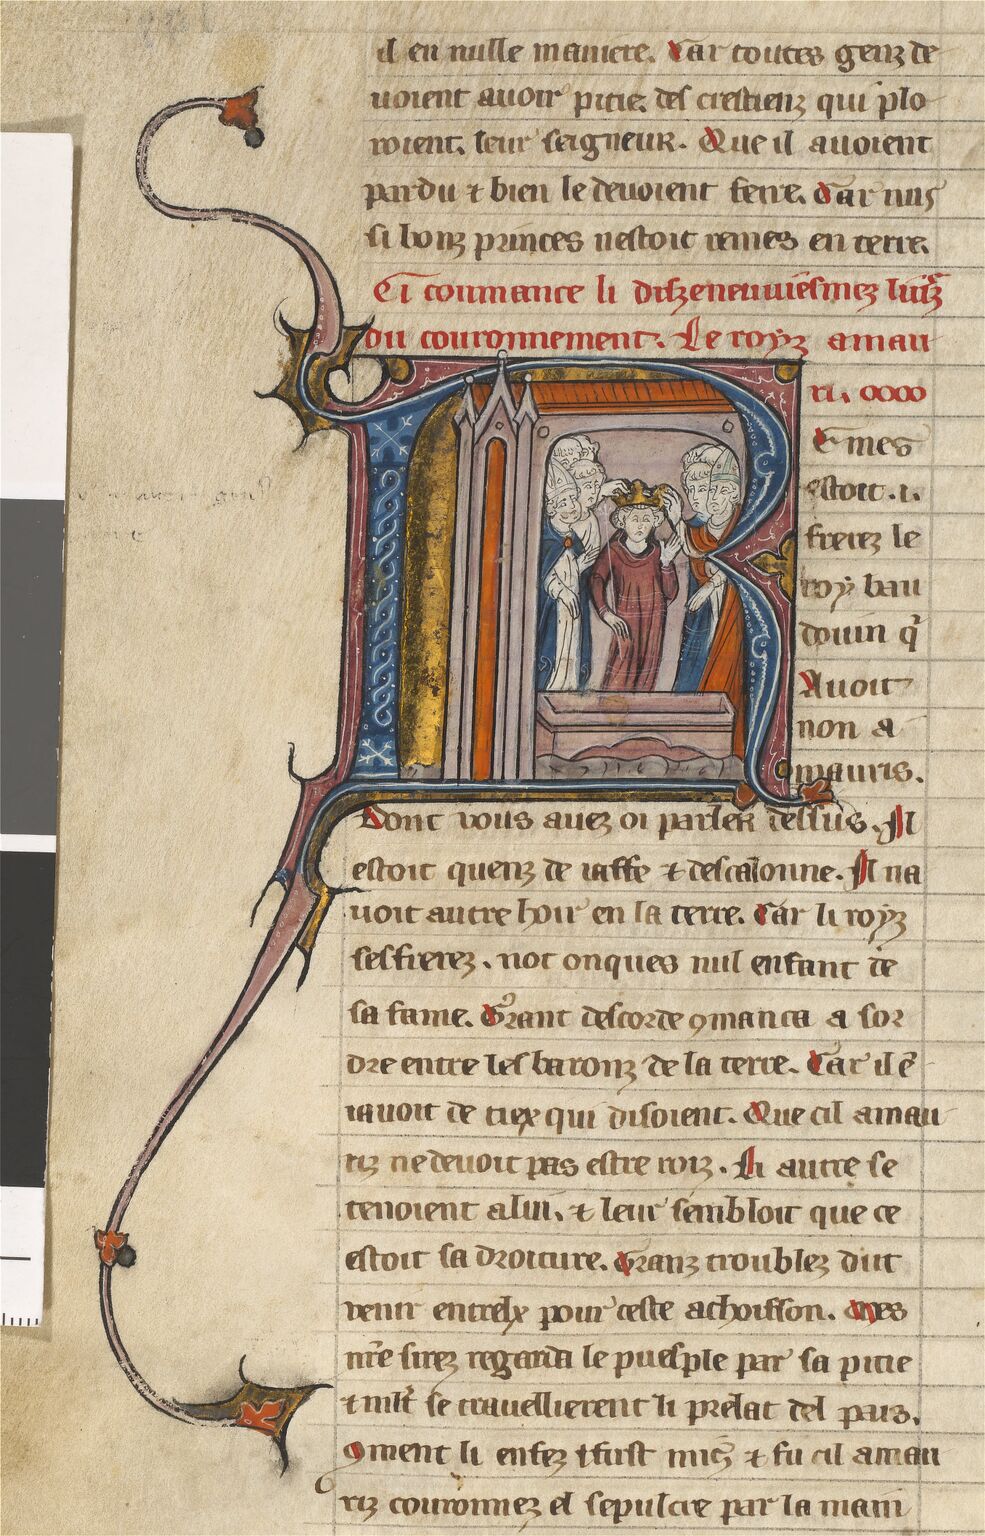 il en nulle maniere. Car toutes genz de
uoient auoir pitie. des crestienz qui plo
roient. leur seigneur. Que il auoient
pardu ⁊ bien le deuoient fere. Car nus
si bonz princes nestoit remes en terre.
Ci coumance li
du couronnement. Le royz amau
ri.
R
mes
estoit .i.
freres le
roy bau
douin q̃
Auoit
non a
mauris.
Dont vous auez oi parler dessus. Il
estoit quenz de iaffe ⁊ descalonne. Il na
uoit autre hoir en la terre. Car li royz
ses frerez. not onques nul enfant de
sa fame. Grant descorde ꝯmanca a sor
dre entre les baronz de la terre. Car il
iauoit de tiex qui disoient. Que cil amau
riz ne deuoit pas estre roiz. Li autre se
tenoient a lui. ⁊ leur sembloit que ce
estoit sa droiture. Granz troublez dut
uenir entrelx pour ceste achoisson. Mes
nr̃e sirez regarda le pueple par sa pitie
⁊ se trauellierent li prelat del pais.
ꝯment li enfez fust ⁊ fu cil amau
riz couronnez el sepulcre par la main